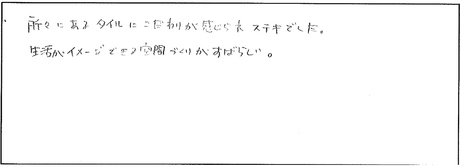 ・所々にあるタイルにこだわりが感じられステキでした。
生活がイメージできる空間づくりがすばらしい。